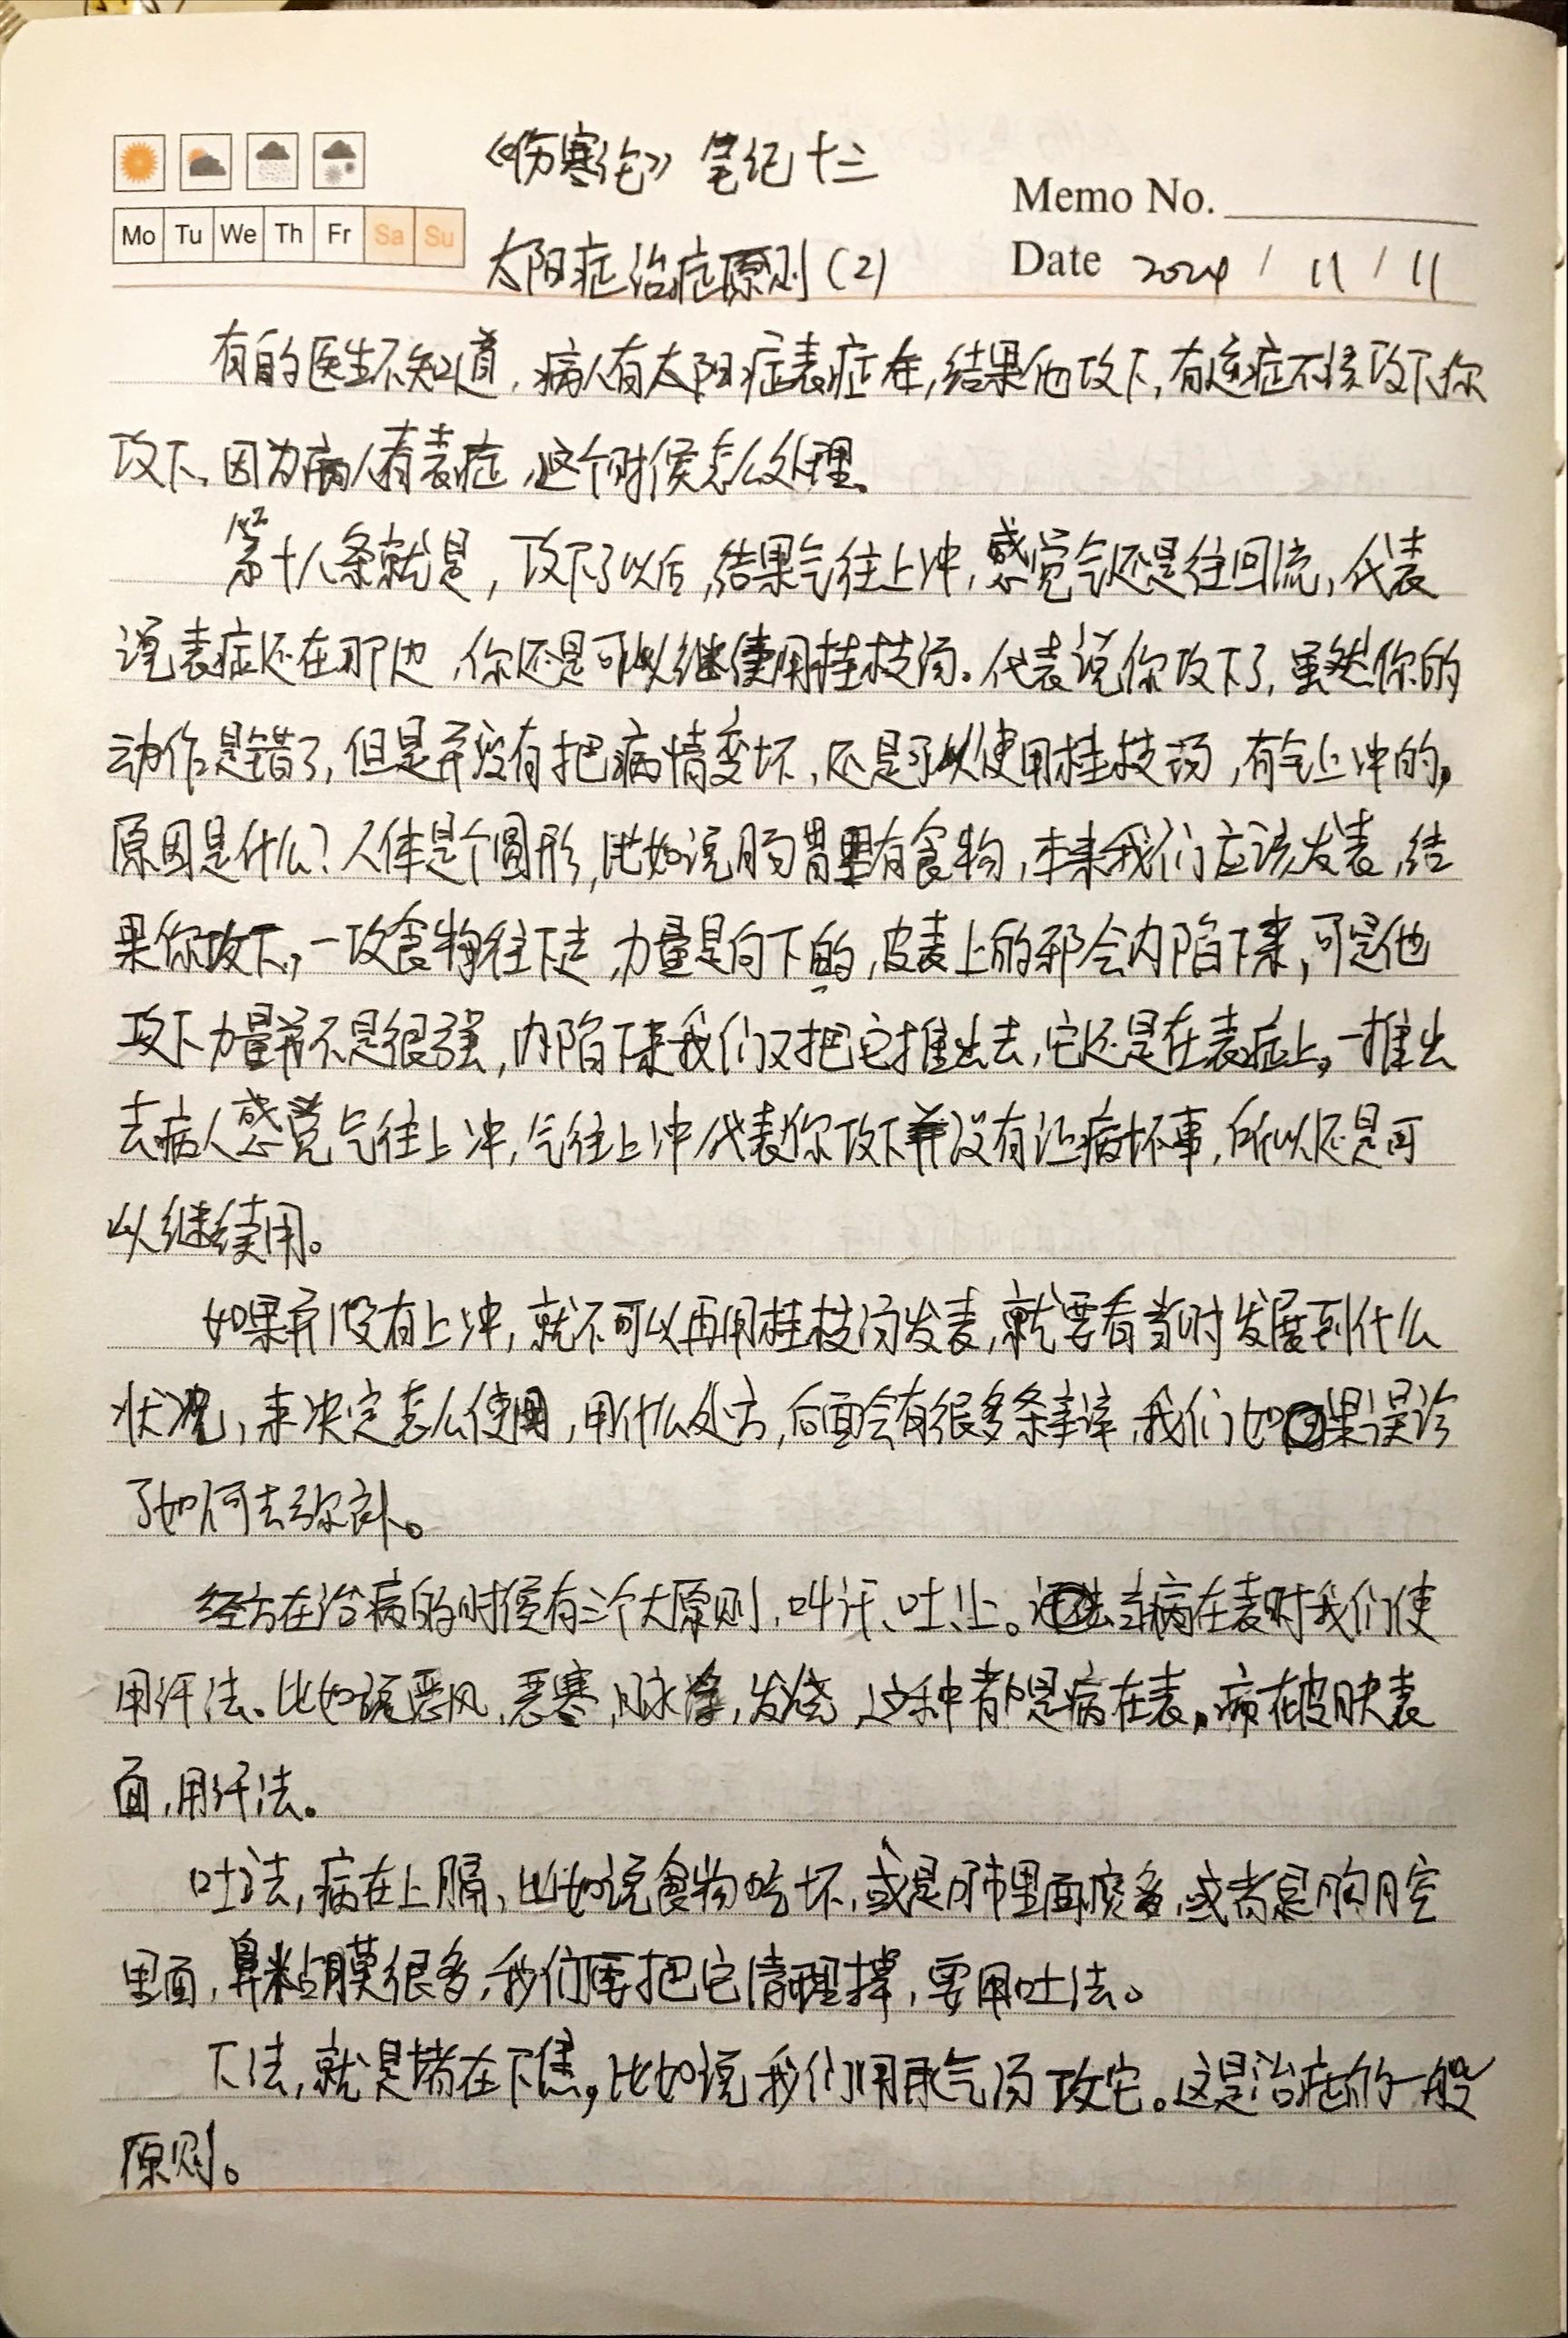 《伤寒论》笔记十三
Memo No.
Mo Tu We Th Fr Sa Su
太阳症治症原则(2)
Date 2024 / 11 / 11
有的医生不知道,病人有太阳症表症在,结果他攻下,有这症不该攻下你
攻下,因为病人有表症,这个时候怎么处理。
第十八条就是,攻下了以后,结果气往上冲,感觉气还是往回流,代表
说表症还在那边,你还是可以继使用桂枝汤。代表说你攻下了,虽然你的
动作是错了,但是并没有把病情变坏,还是可以使用桂枝汤,有气上冲的,
原因是什么?人体是个圆形,比如说肠胃里有食物,本来我们应该发表,结
果你攻下,一攻食物往下走,力量是向下的,皮表上的邪会内陷下来,可是他
攻下力量并不是很强,内陷下来我们又把它推出去,它还是在表症上,一推出
去病人感觉气往上冲,气往上冲代表你攻下并没有让病坏事,所以还是可
以继续用。
如果并没有上冲,就不可以再用桂枝汤发表,就要看当时发展到什么
状况,来决定怎么使用,用什么处方,后面会有很多条辨,我们如果误诊
了如何去弥补。
经方在治病的时候有三个大原则,叫汗、吐、下。当病在表时我们使
用汗法、比如说恶风,恶寒,脉浮,发烧,这种都是病在表,病在皮肤表
面,用汗法。
吐法,病在上膈,比如说食物吃坏,或是肺里面痰多,或者是胸腔
里面,鼻粘膜很多,我们要把它清理掉,要用吐法。
下法,就是堵在下焦,比如说我们用承气汤攻它。这是治症的一般
原则。